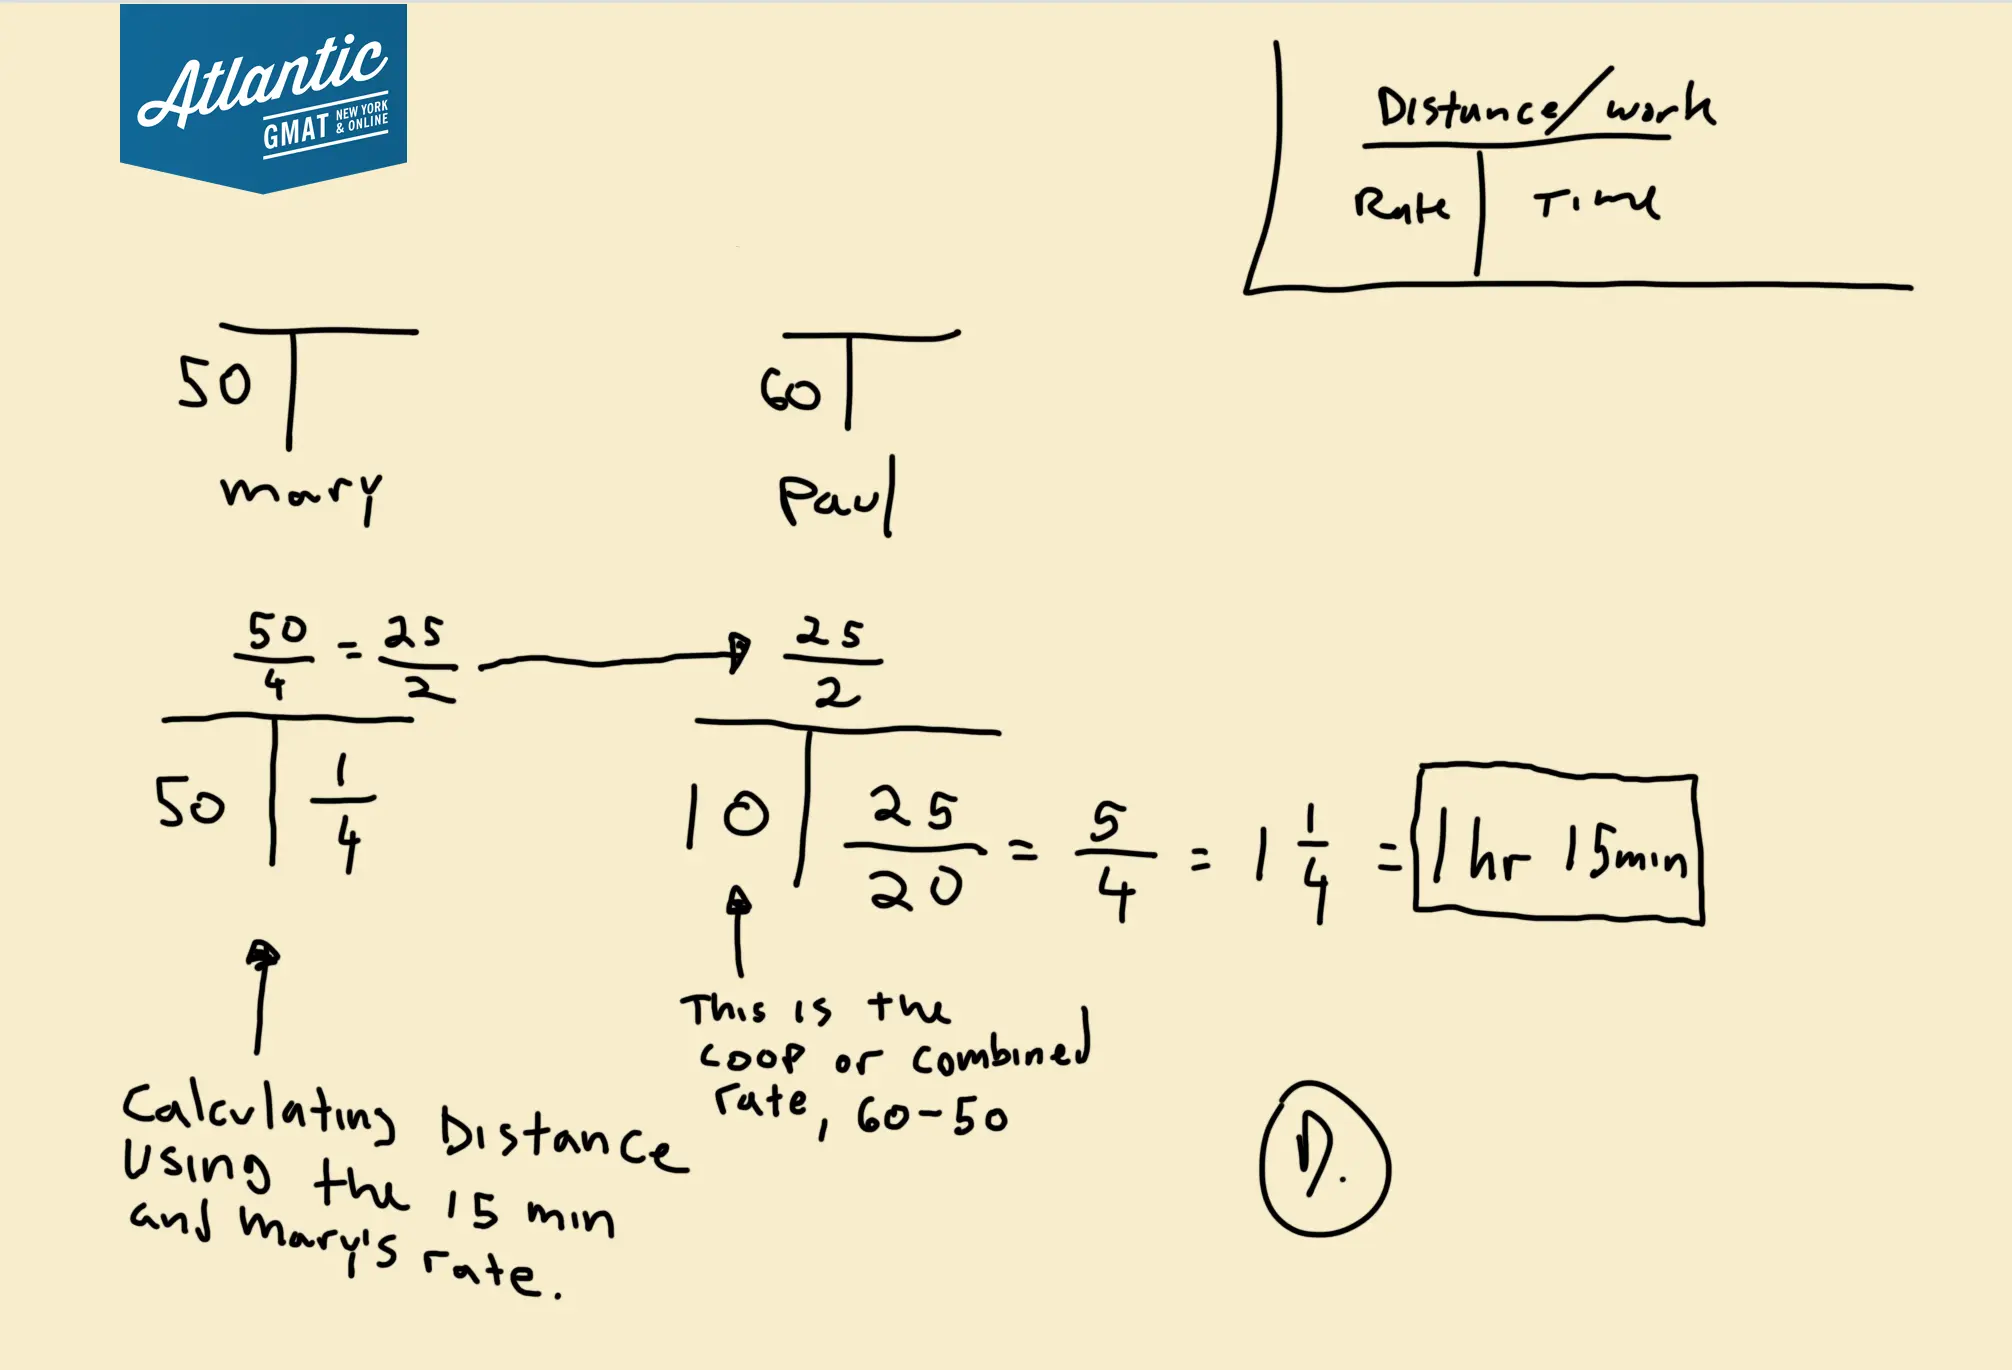 Atlantic
GMAT NEW YORK & ONLINE
Distance/work
Rate | Time
50
mary
60
Paul
50/4 = 25/2
50 | 1/4
25/2
10 | 25/20 = 5/4 = 1 1/4 = 1 hr 15min
Calculating Distance
Using the 15 min
and Mary's rate.
This is the
coop or combined
rate, 60-50
D.